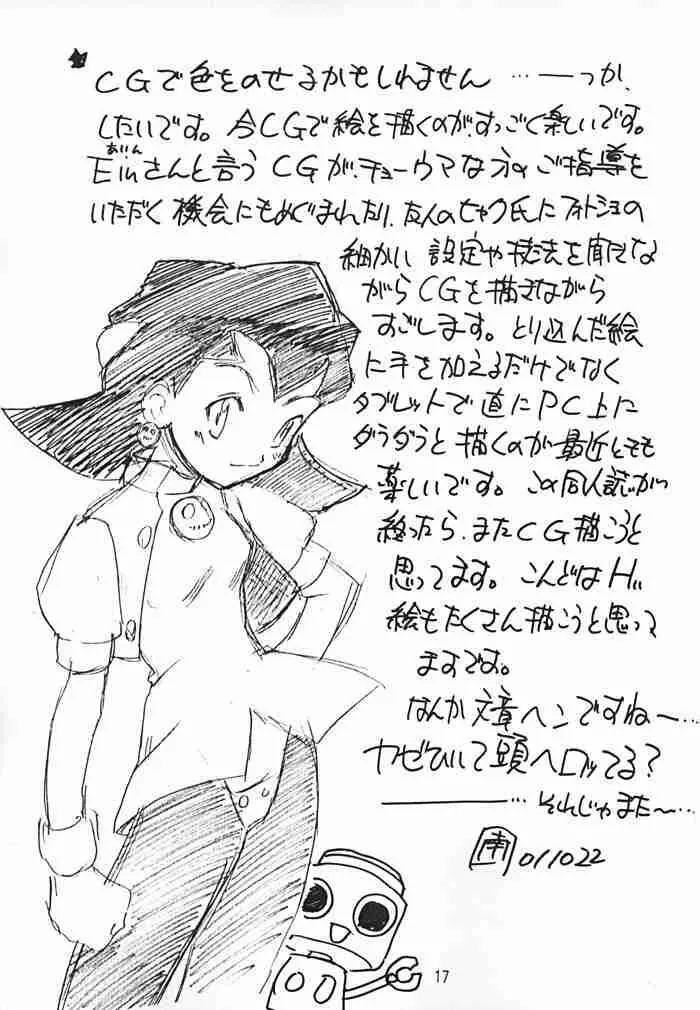 CGで色をのせるかもしれません …―っか、
したいです。今CGで絵を描くのが、すっごく楽しいです。
あいん
Einさんと言う CGが、チョーウマな方の ご指導を
いただく 機会にもめぐまれたり、友人のセャク氏にフォトショの
細かい 設定や技法を聞きな
がらCGを描きながら
すごします。とり込んだ絵
に手を加えるだけでなく
タブレットで直にPC上に
ダラダラと描くのが最近とても
楽しいです。この同人誌が
終ったら、またCG描こうと
思ってます。こんどはH
絵もたくさん描こうと思って
ますです。
なんか文章ヘンですねー…
カゼひいて頭ヘロッてる?
―…それじゃまた〜…
南 011022
17